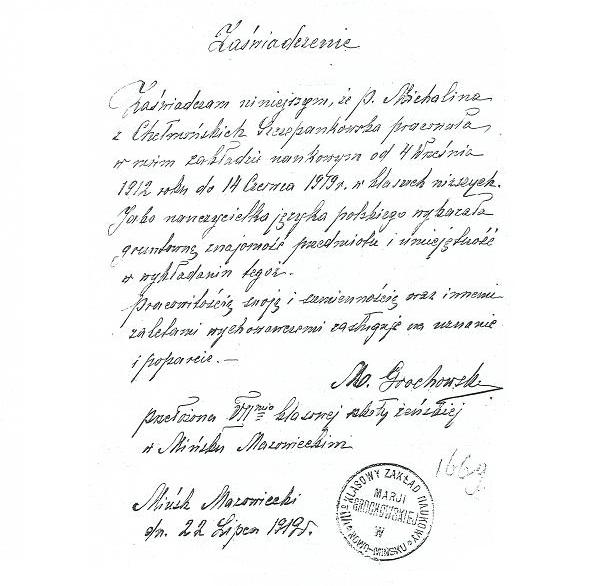 Zaświadczenie
Zaświadczam niniejszym, że p. Michalina
z Chełmońskich Szczepankowska pracowała
w mim zakładzie naukowym od 4 Września
1912 roku do 14 Czerwca 1919 r. w klasach niższych.
Jako nauczycielka języka polskiego wykazała
gruntowną znajomość przedmiotu i umiejętność
w wykładaniu tegoż.
Pracowitością swoją i sumiennością oraz innemi
zaletami wychowawczemi zasługuje na uznanie
i poparcie. —
M. Grochowska
przełożona VII mio klasowej szkoły żeńskiej
w Mińsku Mazowieckim
166g
Mińsk Mazowiecki
dn. 22 Lipca 1919 r.
KLASOWY ZAKŁAD NAUKOWY
MARJI
GROCHOWSKIEJ
W
NOWO-MIŃSKU